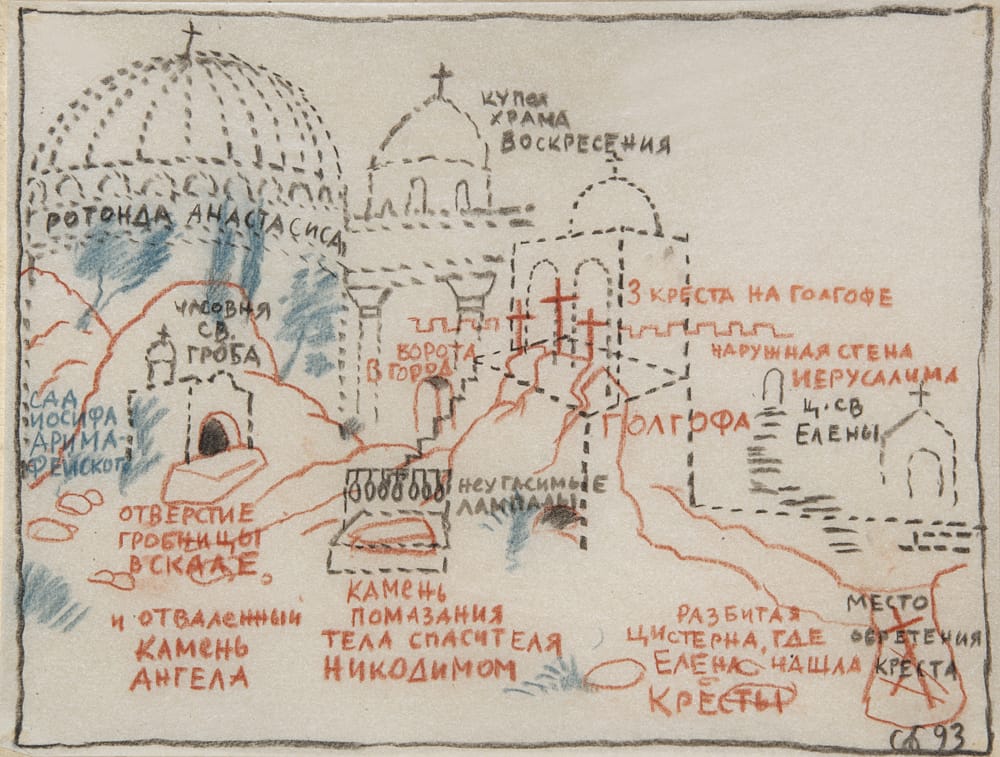 КУПОЛ
ХРАМА
ВОСКРЕСЕНИЯ
РОТОНДА АНАСТАСИСА
ЧАСОВНЯ
СВ.
ГРОБА
3 КРЕСТА НА ГОЛГОФЕ
ВОРОТА
В ГОРОД
НАРУЖНАЯ СТЕНА
ИЕРУСАЛИМА
Ц. СВ
ЕЛЕНЫ
ГОЛГОФА
САД
ИОСИФА
АРИМА-
ФЕЙСКОГО
НЕУГАСИМЫЕ
ЛАМПАДЫ
ОТВЕРСТИЕ
ГРОБНИЦЫ
В СКАЛЕ
И ОТВАЛЕННЫЙ
КАМЕНЬ
АНГЕЛА
КАМЕНЬ
ПОМАЗАНИЯ
ТЕЛА СПАСИТЕЛЯ
НИКОДИМОМ
РАЗБИТАЯ
ЦИСТЕРНА, ГДЕ
ЕЛЕНА НАШЛА
КРЕСТЫ
МЕСТО
ОБРЕТЕНИЯ
КРЕСТА
СБ 93